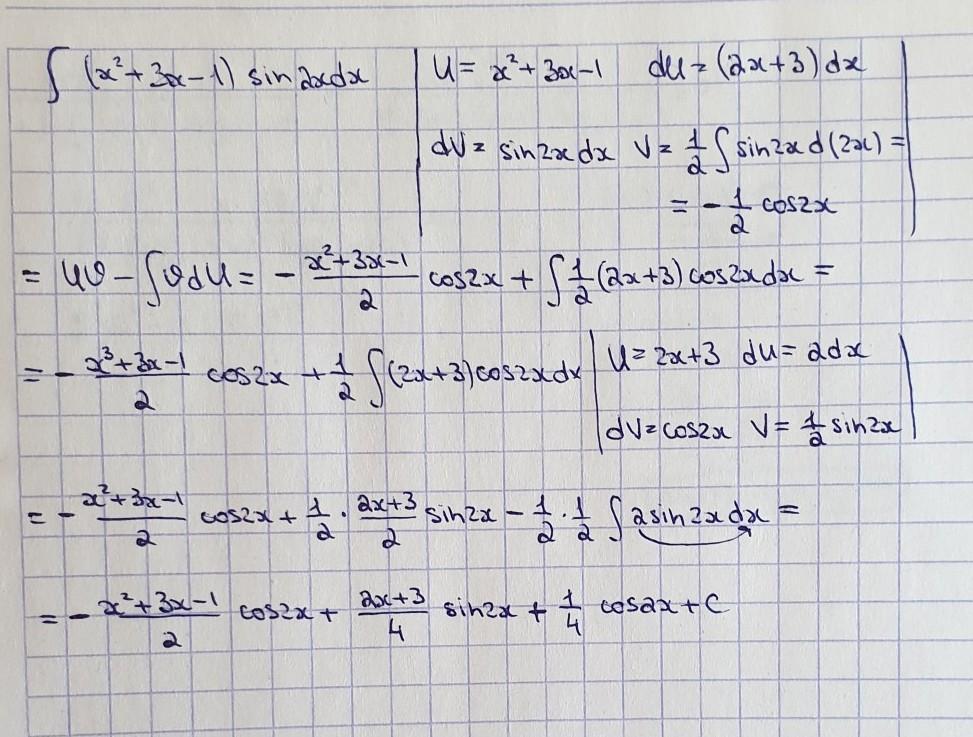 ∫ (x² + 3x − 1) sin 2x dx | U = x² + 3x − 1 du = (2x + 3) dx |
| dV = sin2x dx V = 1/2 ∫ sin2x d(2x) = |
| = − 1/2 cos2x |
= UV − ∫ V dU = − (x² + 3x − 1)/2 cos2x + ∫ 1/2 (2x + 3) cos2x dx =
= − (x³ + 3x − 1)/2 cos2x + 1/2 ∫ (2x + 3) cos2x dx | U = 2x + 3 du = 2dx |
| dV = cos2x V = 1/2 sin2x |
= − (x² + 3x − 1)/2 cos2x + 1/2 · (2x + 3)/2 sin2x − 1/2 · 1/2 ∫ 2 sin 2x dx =
= − (x² + 3x − 1)/2 cos2x + (2x + 3)/4 sin2x + 1/4 cos2x + C